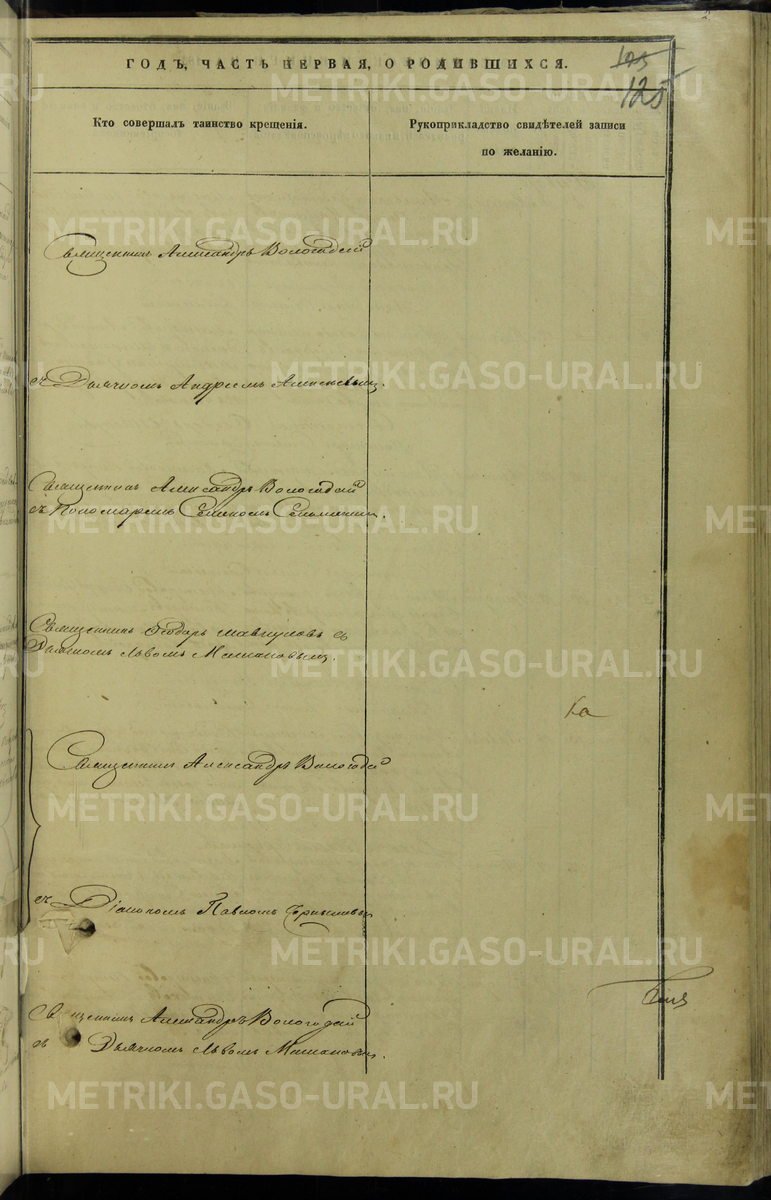 ГОДЪ, ЧАСТЬ ПЕРВАЯ, О РОДИВШИХСЯ.
125
Кто совершалъ таинство крещенія.
Рукоприкладство свидѣтелей записи
по желанію.
Священникъ Александръ Вологодскій
съ Дьячкомъ Андреемъ
Священникъ Александръ Вологодскій
съ Пономаремъ Семеномъ
Священникъ Ѳеодоръ съ
Дьячкомъ Львомъ
Священникъ Александръ Вологодскій
съ Діакономъ Павломъ
Священникъ Александръ Вологодскій
съ Дьячкомъ Львомъ
METRIKI.GASO-URAL.RU